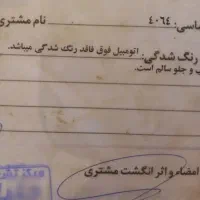 اسی: ۴۰۶۴ نام مشتری
رنگ شدگی: اتومبیل فوق فاقد رنگ شدگی میباشد.
ب و جلو سالم است.
امضاء و اثر انگشت مشتری